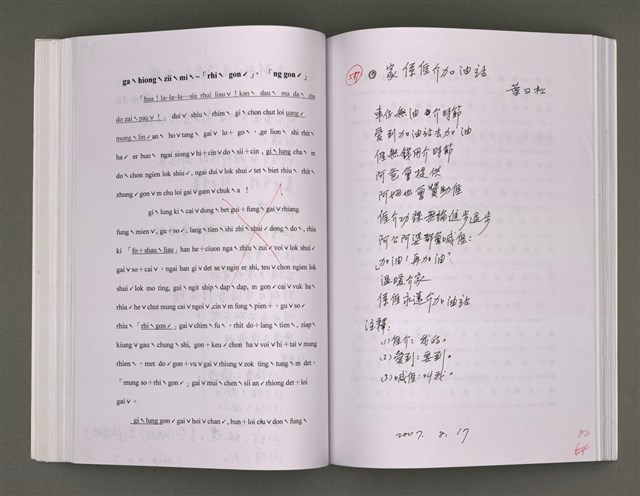 ga﹨hiong﹨zii﹨mi﹨~「rhi﹨ gon⸍」、「ng gon⸍」
「hua！la⸍la⸍la⸍⋯sia rhui liau∨！kan﹨ dau﹨ ma da﹨ ziu
do zai﹨pau∨！」 dui∨ shiu﹨ rhim﹨ gi﹨chon chut loi uang⸍
mong﹨lin⸍an﹨ ho∨tang﹨ gai∨ lo+ gon﹨,ge lion﹨ shi rhit﹨
ha⸍er bun﹨ ngai siong﹨hi＋cin∨do﹨sii＋cin，gi﹨lung cha﹨ m
do﹨chon ngiem lok shiu⸍, ngai dui∨lok shui⸍tet﹨biet rhiu﹨ rhit﹨
zhung﹨gon∨m chu loi gai∨gam∨chuk﹨a！
gi﹨lung ki﹨cai∨dung﹨bet gui＋fung﹨gai∨rhiang
fung﹨mien∨, gu＋so⸍, lang﹨tien﹨shi zhi﹨shui⸍dong﹨do﹨, rhiu
ki 「fo＋shau﹨liau」han he＋ciuon nga﹨zhiu﹨zui∨voi∨lok shui⸍
gai∨so＋cai∨。ngai han gi∨det se∨ngin er shi, teu∨chon ngiem lok
shui⸍lok mo ting, gui﹨ngit ship﹨dap﹨dap, m gon⸍cai∨vuk ha﹨
rhia⸍he∨chut mung cai∨ngoi∨,cin∨m fong﹨pien＋，gu∨so⸍
rhiu﹨「rhi﹨gon⸍」gai∨chim﹨fu﹨，rhit do＋lang﹨tien﹨, ziap﹨
kiung∨gau﹨chung﹨shi, gon＋keu⸍chon ha∨voi∨hi＋tai∨mung
rhien﹨，met do⸍gon＋vu∨gai∨rhiung∨zok ting﹨tung﹨m det⸍
「mung so＋rhi﹨gon⸍」gai∨mui﹨chen﹨sii an⸍rhiong det＋loi
gai∨。
gi﹨lung gon⸍gai∨hoi∨chan⸍, bun＋loi chu∨don﹨fung﹨
587 ◎ 家係𠊎介加油站
葉日松
車仔無油介時節
愛到加油站去加油
𠊎無錢用介時節
阿爸會提供
阿姆也會贊助𠊎
𠊎介功課無論進步退步
阿公阿婆都會喊𠊎：
「加油！再加油」
溫暖介家
係𠊎永遠介加油站
注釋：
(1)𠊎介：我的。
(2)愛到：要到。
(3)喊𠊎：叫我。
2007. 8. 17